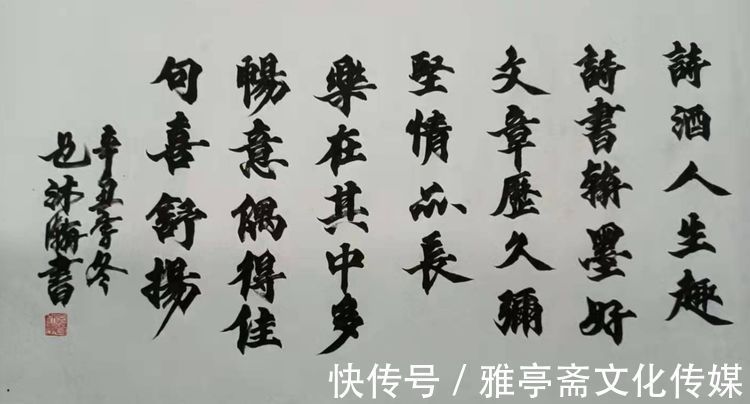 詩酒人生趣
詩書翰墨好
文章歷久彌
堅情品長
樂在其中多
暢意偶得佳
句喜舒揚
辛丑季冬
沐瀚書
快传号 / 雅亭斋文化传媒